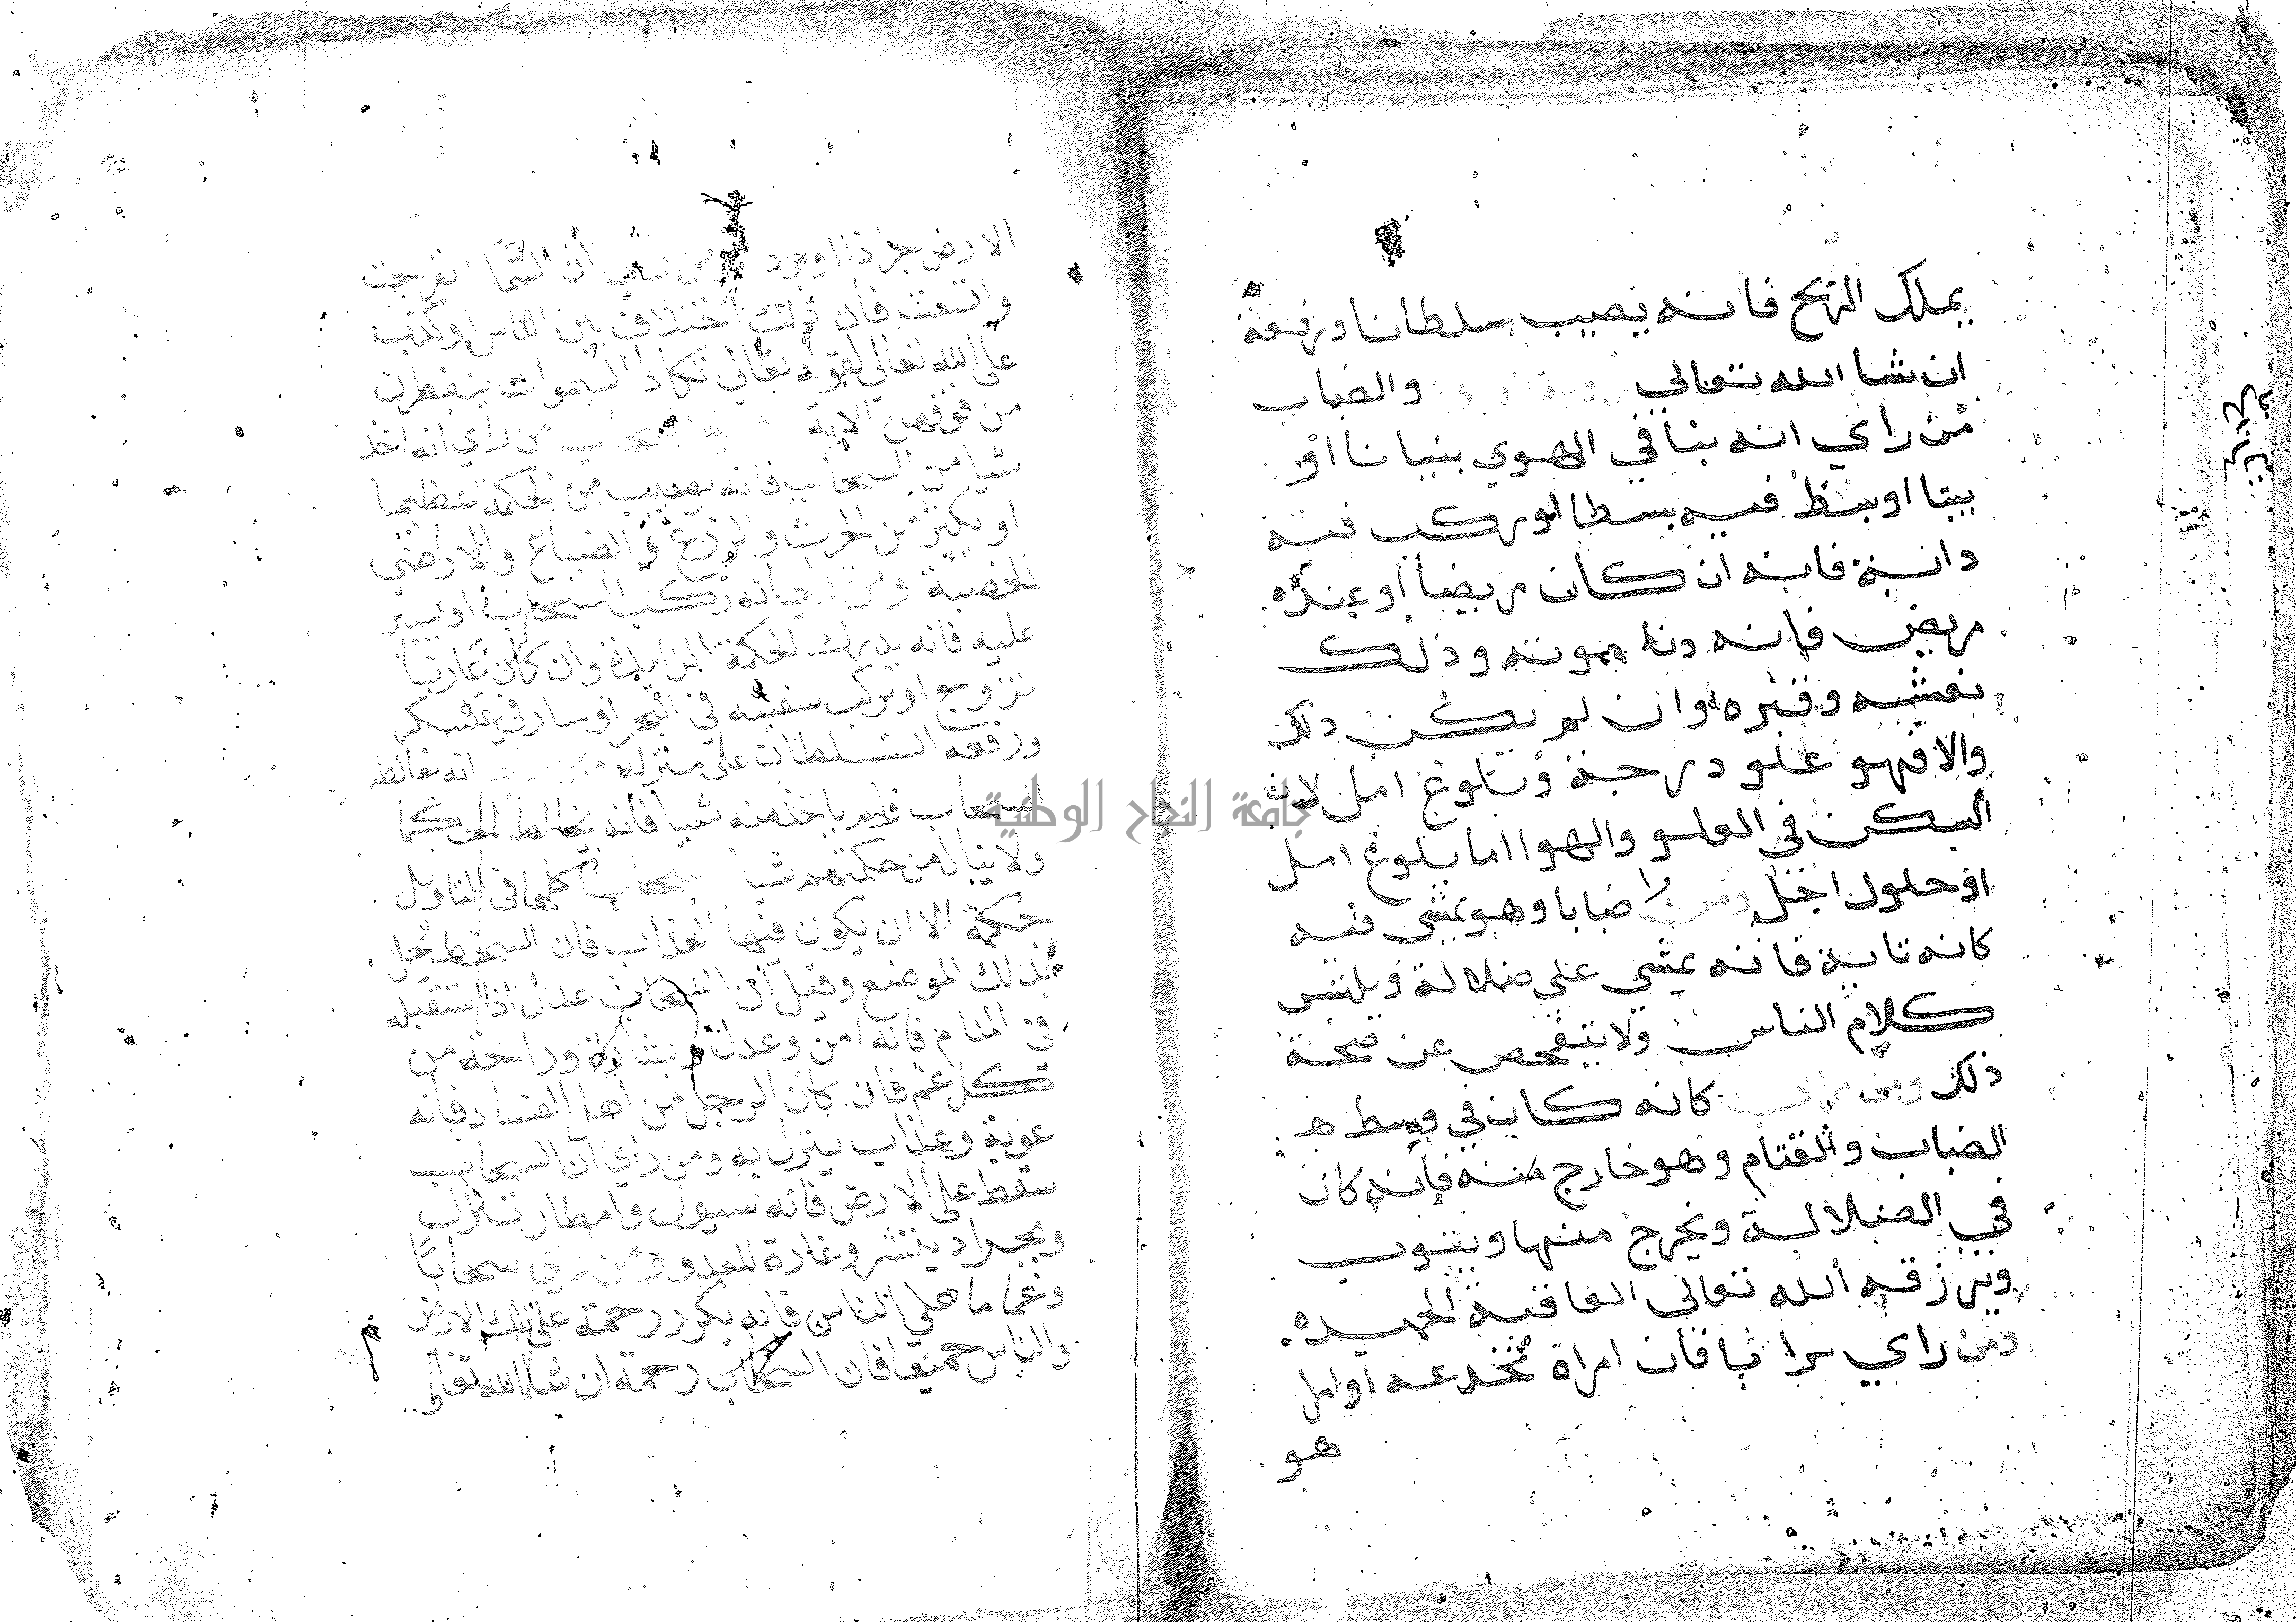 يملك الريح فانه يصيب سلطانا ورفعة
ان شا الله تعالي والضباب
من راي انه بنا في الهوي بنيانا او
بيتا اوبسط فيه بسطا اوركب فيه
دابة فانه ان كان مريضا اوعنده
مريض فانه دنا موته وذلك
نعشه وقبره وان لم يكن ذلك
والا فهو علو درجة وبلوغ امل لان
السكن في العلو والهوا اما بلوغ امل
او حلول اجل ومن را ضبابا وهو يمشي فيه
كانه تايه فانه يمشي علي ضلالة ويلتبس
كلام الناس ولا يتفحص عن صحة
ذلك ومن راي كانه كان في وسط ه
الضباب والقتام وهو خارج منه فانه كان
في الضلالة ويخرج منها ويتوب
ويرزقه الله تعالي العافيه الحميده
ومن راي سرابا فان امراة تخدعه اوامل
هو
الارض جراذا اوبرد ومن راي ان السما انفرجت
واتسعت فان ذلك اختلاف بين الناس اوكذب
علي الله تعالي لقوله تعالي تكاد السموات يتفطرن
من فوقهن الاية من راي انه اخذ
شيا من السحاب فانه يصيب من الحكمة عظيما
او يكثر من الحرث والزرع والضياع والاراضي
الخصبة ومن راي انه ركب السحاب او يسير
عليه فانه يدرك الحكمة الزايدة وان كان عازبا
تزوج او يركب سفينه في البحر اوسار في عسكر
ورفعه السلطان علي منزله ومن انه خالط
السحاب ولم ياخذ منه شيا فانه يخالط الحكما
ولا ينال من حكمتهم شيا كلها في التاويل
حكمة الا ان يكون فيها العذاب فان السخط يحل
بذلك الموضع وقيل ان السحاب عدل اذا استقبله
في المنام فانه امن وعدل وبشارة وراحة من
كل غم فان كان الرجل من اهل الفساد فانه
عوبة وعذاب ينزل به ومن راي ان السحاب
سقط علي الارض فانه سيول وامطار تنزل
وبجراد ينتشر وغارة للعدو ومن راي سحابا
وغماما علي الناس فانه يكرر رحمة علي تلك الارض
والناس جميعا فان السحاب رحمة ان شا الله تعالي
جامعة النجاح الوطنية